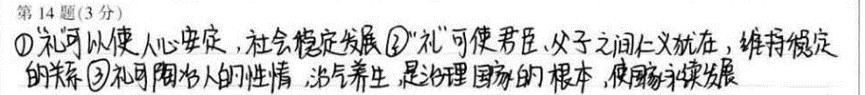 第14题(3分)
①“礼”可以使人心安定,社会稳定发展②“礼”可使君臣、父子之间仁义犹在,维持稳定
的关系③礼可陶冶人的性情,治气养生,是治理国家的根本,使国家永续发展